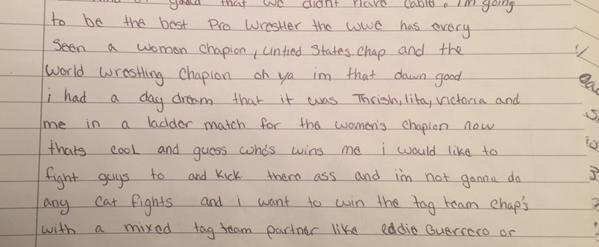 good that we didnt have cable. I'm going
to be the best Pro Wrestler the wwe has every
seen a women chapion, untied States chap and the
World wrestling chapion oh ya im that dawn good
i had a day dream that it was Thrish, lita, victoria and
me in a ladder match for the women's chapion now
thats cool and guess who's wins me i would like to
fight guys to and kick there ass and i'm not gonna do
any cat fights and i want to win the tag team chap's
with a mixed tag team partner like eddie Guerrero or